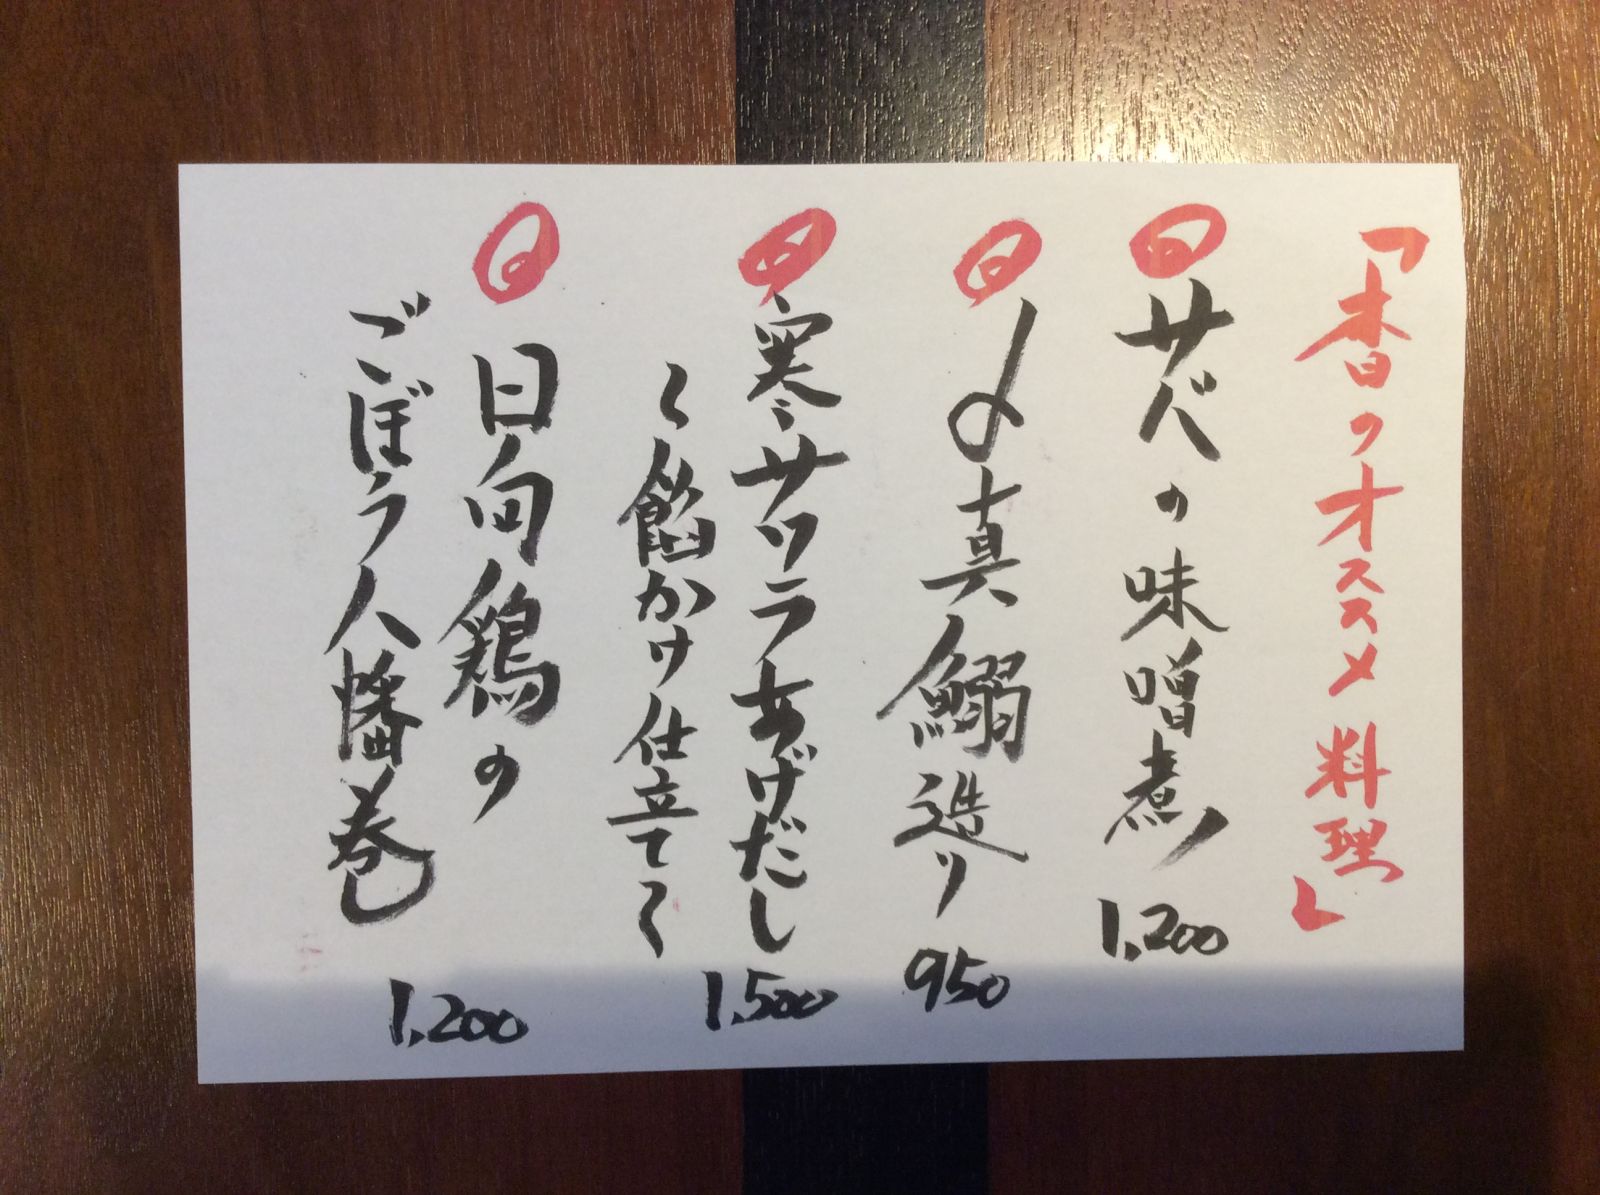 「香のオススメ料理」
サバの味噌煮 1,200
〆真鰯造り 950
寒サワラあげだし 1,500
〜餡かけ仕立て〜
日向鶏の
ごぼう八幡巻 1,200